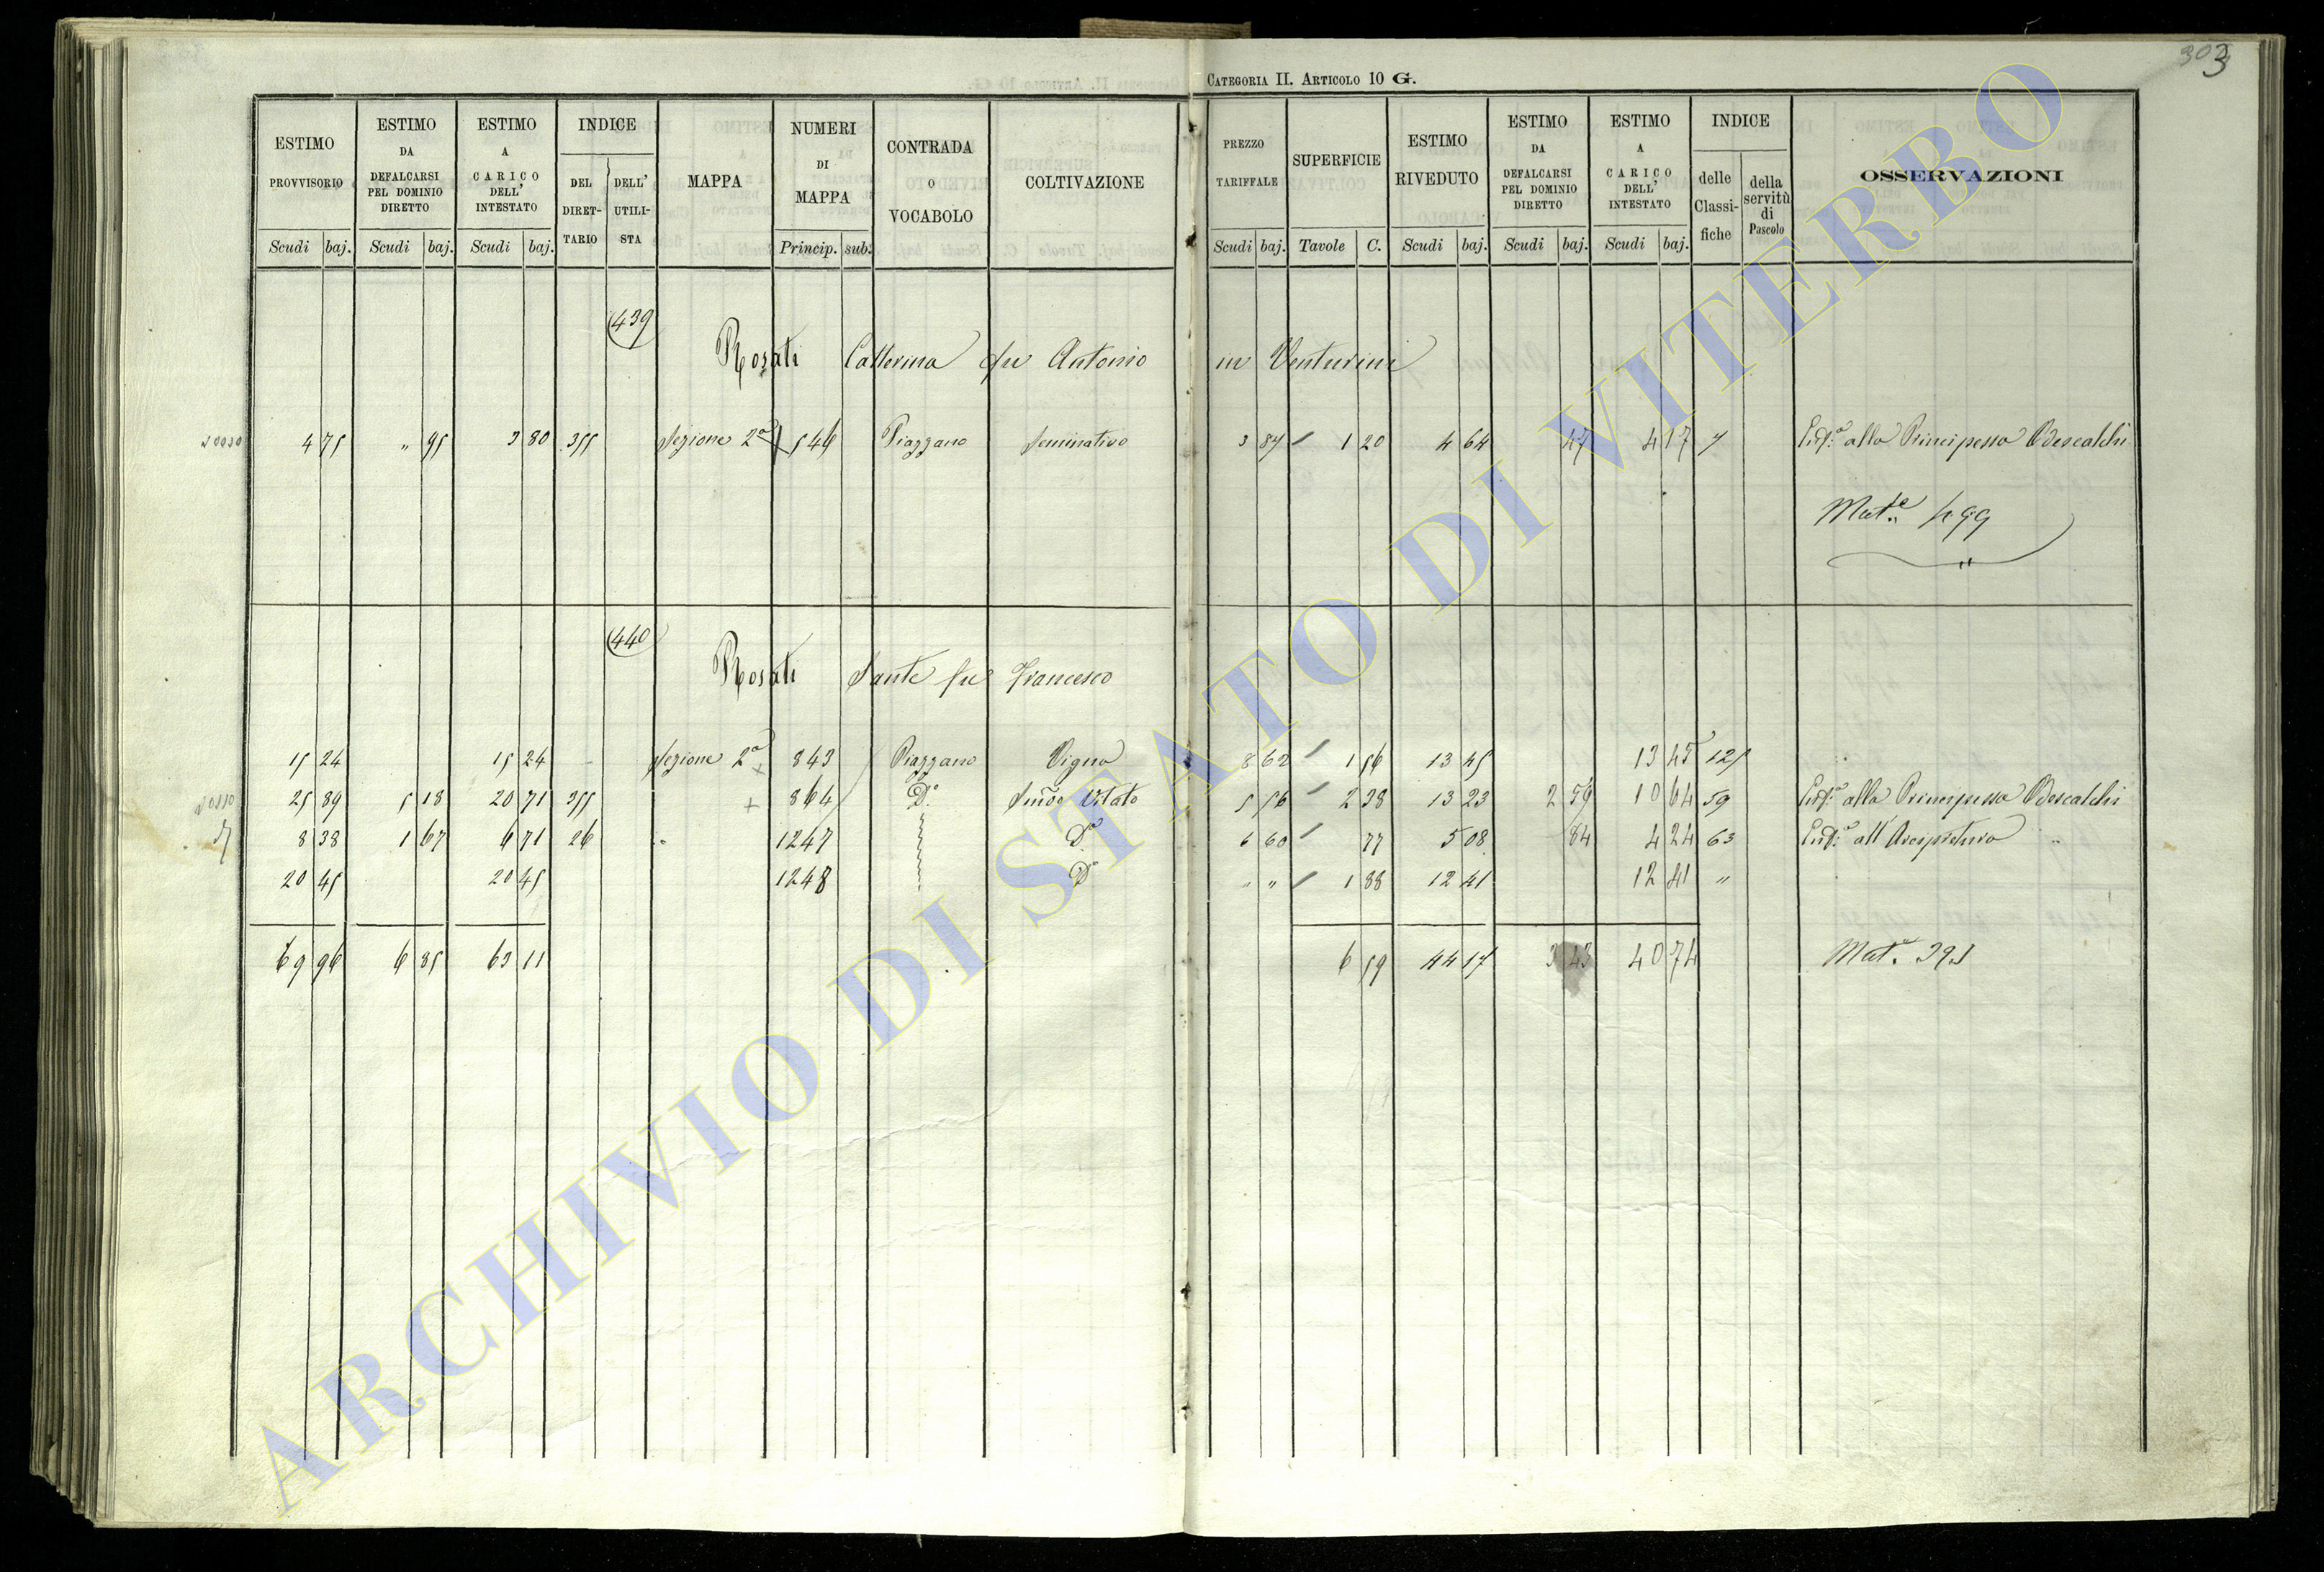 303
CATEGORIA II. ARTICOLO 10 G.
ESTIMO PROVVISORIO Scudi baj. | ESTIMO DA DEFALCARSI PEL DOMINIO DIRETTO Scudi baj. | ESTIMO A CARICO DELL' INTESTATO Scudi baj. | INDICE DEL DIRET-TARIO | DELL' UTILI-STA | MAPPA | NUMERI DI MAPPA Princip. sub. | CONTRADA O VOCABOLO | COLTIVAZIONE | PREZZO TARIFFALE Scudi baj. | SUPERFICIE Tavole C. | ESTIMO RIVEDUTO Scudi baj. | ESTIMO DA DEFALCARSI PEL DOMINIO DIRETTO Scudi baj. | ESTIMO A CARICO DELL' INTESTATO Scudi baj. | INDICE delle Classi-fiche | della servitù di Pascolo | OSSERVAZIONI
439
Rosati Catterina fu Antonio in Venturini
4 75 " 95 3 80 355 Sezione 2a 546 Piazzano Seminativo 3 87 1 20 4 64 47 4 17 7 Enf.a alla Principessa Odescalchi
Mat.e 499
440
Rosati Sante fu Francesco
15 24 15 24 Sezione 2a 843 Piazzano Vigna 8 62 1 56 13 45 13 45 125
25 89 5 18 20 71 355 + 864 Do. Semvo Vitato 5 56 2 38 13 23 2 59 10 64 59 Enf.a alla Principessa Odescalchi
8 38 1 67 6 71 26 " 1247 Do 6 60 77 5 08 84 4 24 63 Enf.a all'Arcipretura "
20 45 20 45 1248 Do " " 1 88 12 41 12 41 "
69 96 6 85 63 11 6 59 44 17 3 43 40 74 Mat. 391
ARCHIVIO DI STATO DI VITERBO